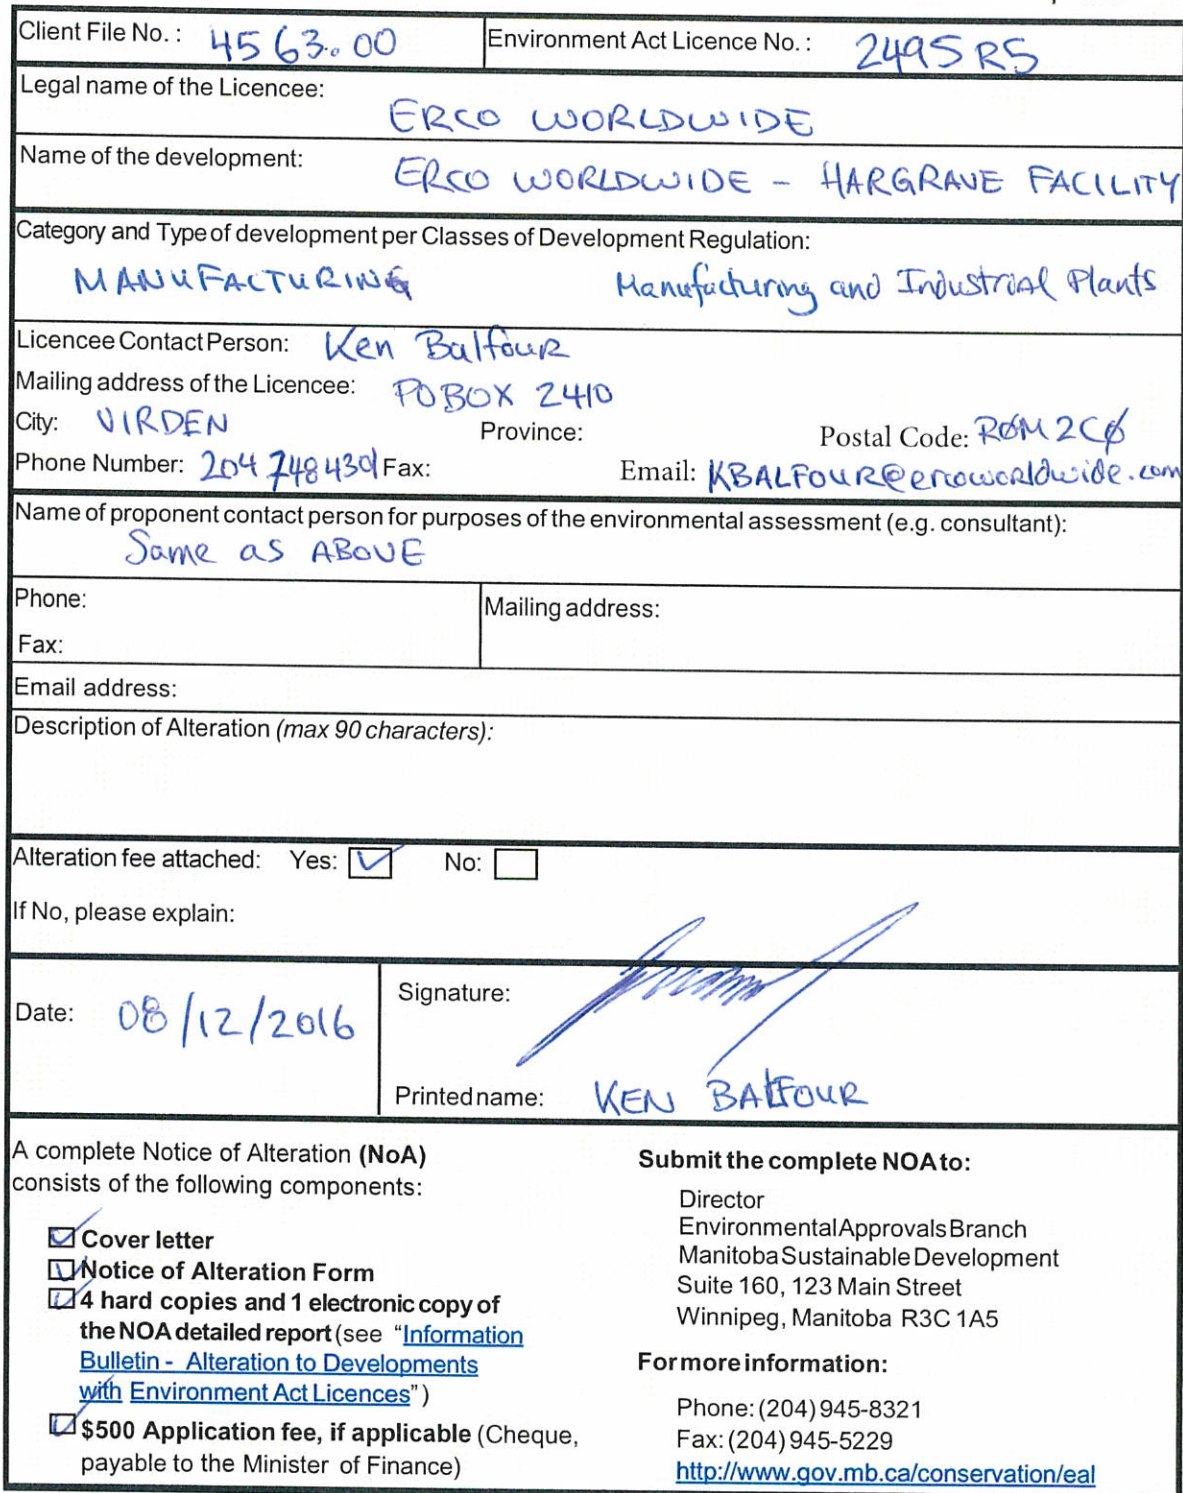 Client File No. : 4563.00 Environment Act Licence No. : 2495 R5
Legal name of the Licencee: ERCO WORLDWIDE
Name of the development: ERCO WORLDWIDE - HARGRAVE FACILITY
Category and Type of development per Classes of Development Regulation:
MANUFACTURING Manufacturing and Industrial Plants
Licencee Contact Person: Ken Balfour
Mailing address of the Licencee: PO BOX 2410
City: VIRDEN Province: Postal Code: R0M 2C0
Phone Number: 204 748 4301 Fax: Email: KBALFOUR@ercoworldwide.com
Name of proponent contact person for purposes of the environmental assessment (e.g. consultant):
Same as ABOVE
Phone: Mailing address:
Fax:
Email address:
Description of Alteration (max 90 characters):
Alteration fee attached: Yes: No:
If No, please explain:
Date: 08/12/2016 Signature:
Printed name: KEN BALFOUR
A complete Notice of Alteration (NoA)
consists of the following components:
Cover letter
Notice of Alteration Form
4 hard copies and 1 electronic copy of
the NOA detailed report (see "Information
Bulletin - Alteration to Developments
with Environment Act Licences")
$500 Application fee, if applicable (Cheque,
payable to the Minister of Finance)
Submit the complete NOA to:
Director
Environmental Approvals Branch
Manitoba Sustainable Development
Suite 160, 123 Main Street
Winnipeg, Manitoba R3C 1A5
For more information:
Phone: (204) 945-8321
Fax: (204) 945-5229
http://www.gov.mb.ca/conservation/eal